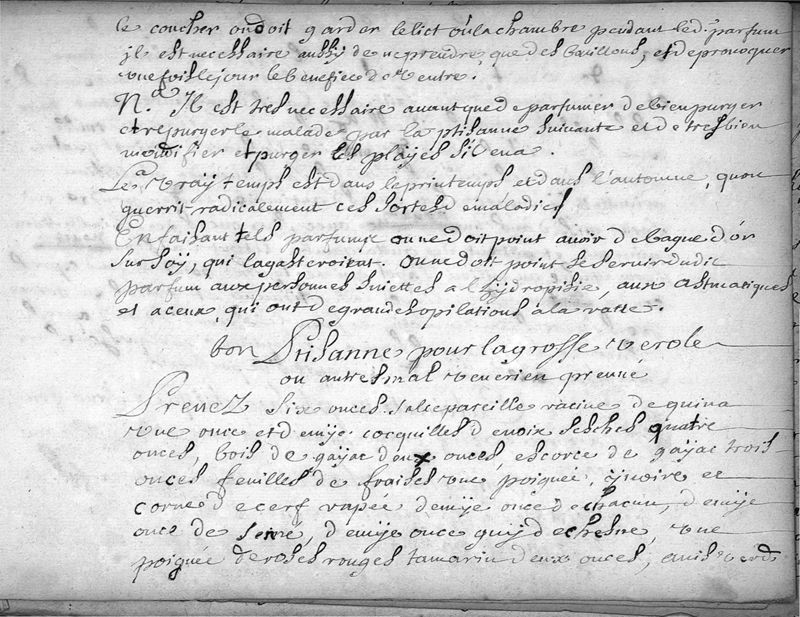 le coucher on doit garder le lict ou la chambre pendant led. parfum
jl est necessaire aussy de ne prendre, que des bouillons, et de provoquer
une fois le jour le benefice de ventre.
Na. Il est tres necessaire avant que de parfumer de bien purger
et repurger le malade par la ptisanne suivante et de tres bien
mondifier et purger les playes sil en a.
Le vray temps est dans le printemps et dans l'automne, quon
guerrit radicalement ces sortes de maladies
En faisant tels parfums on ne doit point avoir de bague d'or
sur soy, qui la gasteroient. on ne doit point se servir dudit
parfum aux personnes suiettes a l'hydropisie, aux astmatiques
et a ceux, qui ont de grandes opilations a la ratte.
bon Ptisanne pour la grosse verole
ou autres mal venerien preuvé
Prenez six onces salcepareille racine de quina
une once et demije cocquilles de noix sesches quatre
onces, bois de gayac deux onces, escorce de gayac trois
onces feuilles de fraises une poignée, yvoire et
corne de cerf rapée demije once de chacun, demije
once de senné, demije once guy de chesne, une
poignée de roses rouges tamarin deux onces, anis verd